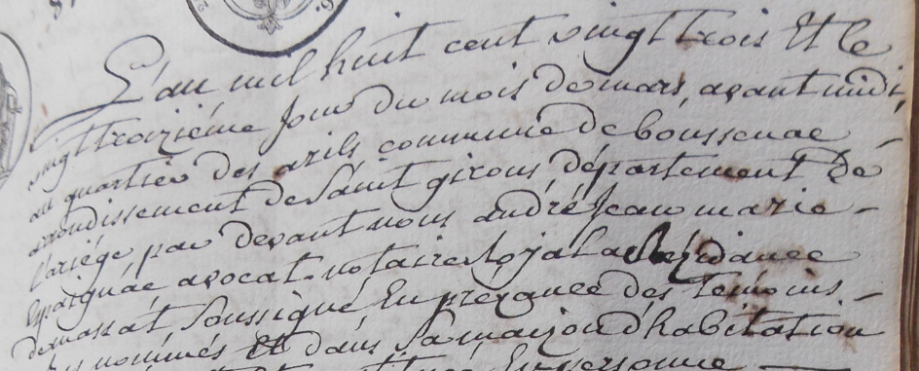 L'an mil huit cent vingt trois Et le
vingt troizième jour du mois de mars, avant midi,
au quartier des arils commune de boussenac
arrondissement de Saint girons, département De
l'ariége, par devant nous andré Jean marie
avocat notaire Royal a la Rezidance
demassat, Soussigné En prezance des Temoins
nommés Et dans Sa maizon d'habitation
En personne